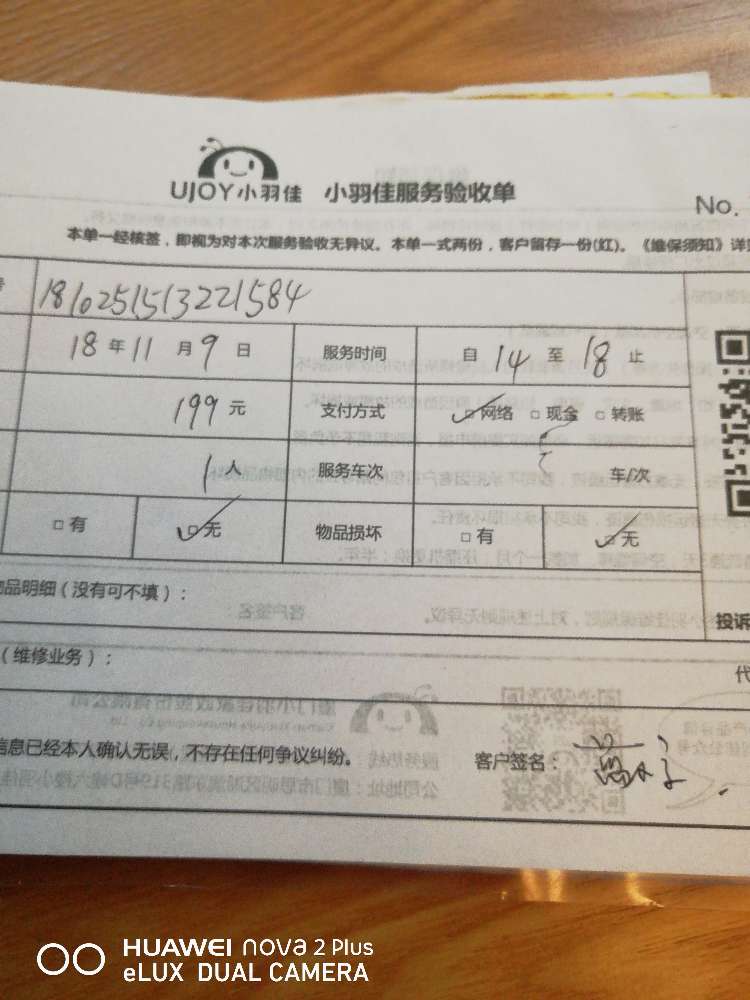 UJOY小羽佳 小羽佳服务验收单
No.
本单一经核签，即视为对本次服务验收无异议。本单一式两份，客户留存一份(红)。《维保须知》详
号 181025151322221584
18年11月9日 服务时间 自14至18止
199元 支付方式 □网络 □现金 □转账
1人 服务车次 车/次
□有 □无 物品损坏 □有 □无
品明细（没有可不填）：
投诉
（维修业务）：
代
信息已经本人确认无误，不存在任何争议纠纷。 客户签名：
HUAWEI nova 2 Plus
eLUX DUAL CAMERA